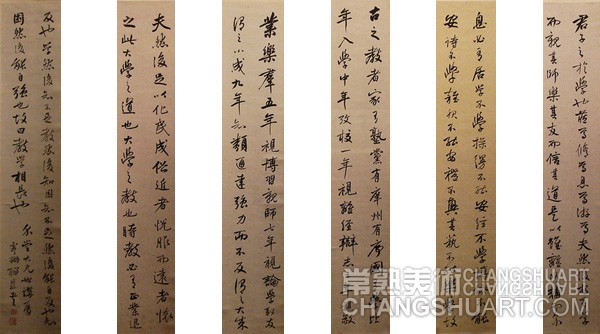 君子之於學也藏焉修焉息焉游焉夫然
而親其師樂其友而信其道是以雖離師
息必有居學不學操縵不能安絃不學
安詩不學雜服不能安禮不興其藝不能樂學故
古之教者家有塾黨有庠州有序國有學比
年入學中年攷校一年視離經辯志三年視敬
業樂群五年視博習親師七年視論學取友
謂之小成九年知類通達強力而不反謂之大成
夫然後足以化民成俗近者悅服而遠者懷
之此大學之道也大學之教也時教必有正業退
學然後知不足教然後知困知不足然後能自反也知
困然後能自強也故曰教學相長也
常熟美術 CHANGSHUART
CHANGSHUART.COM